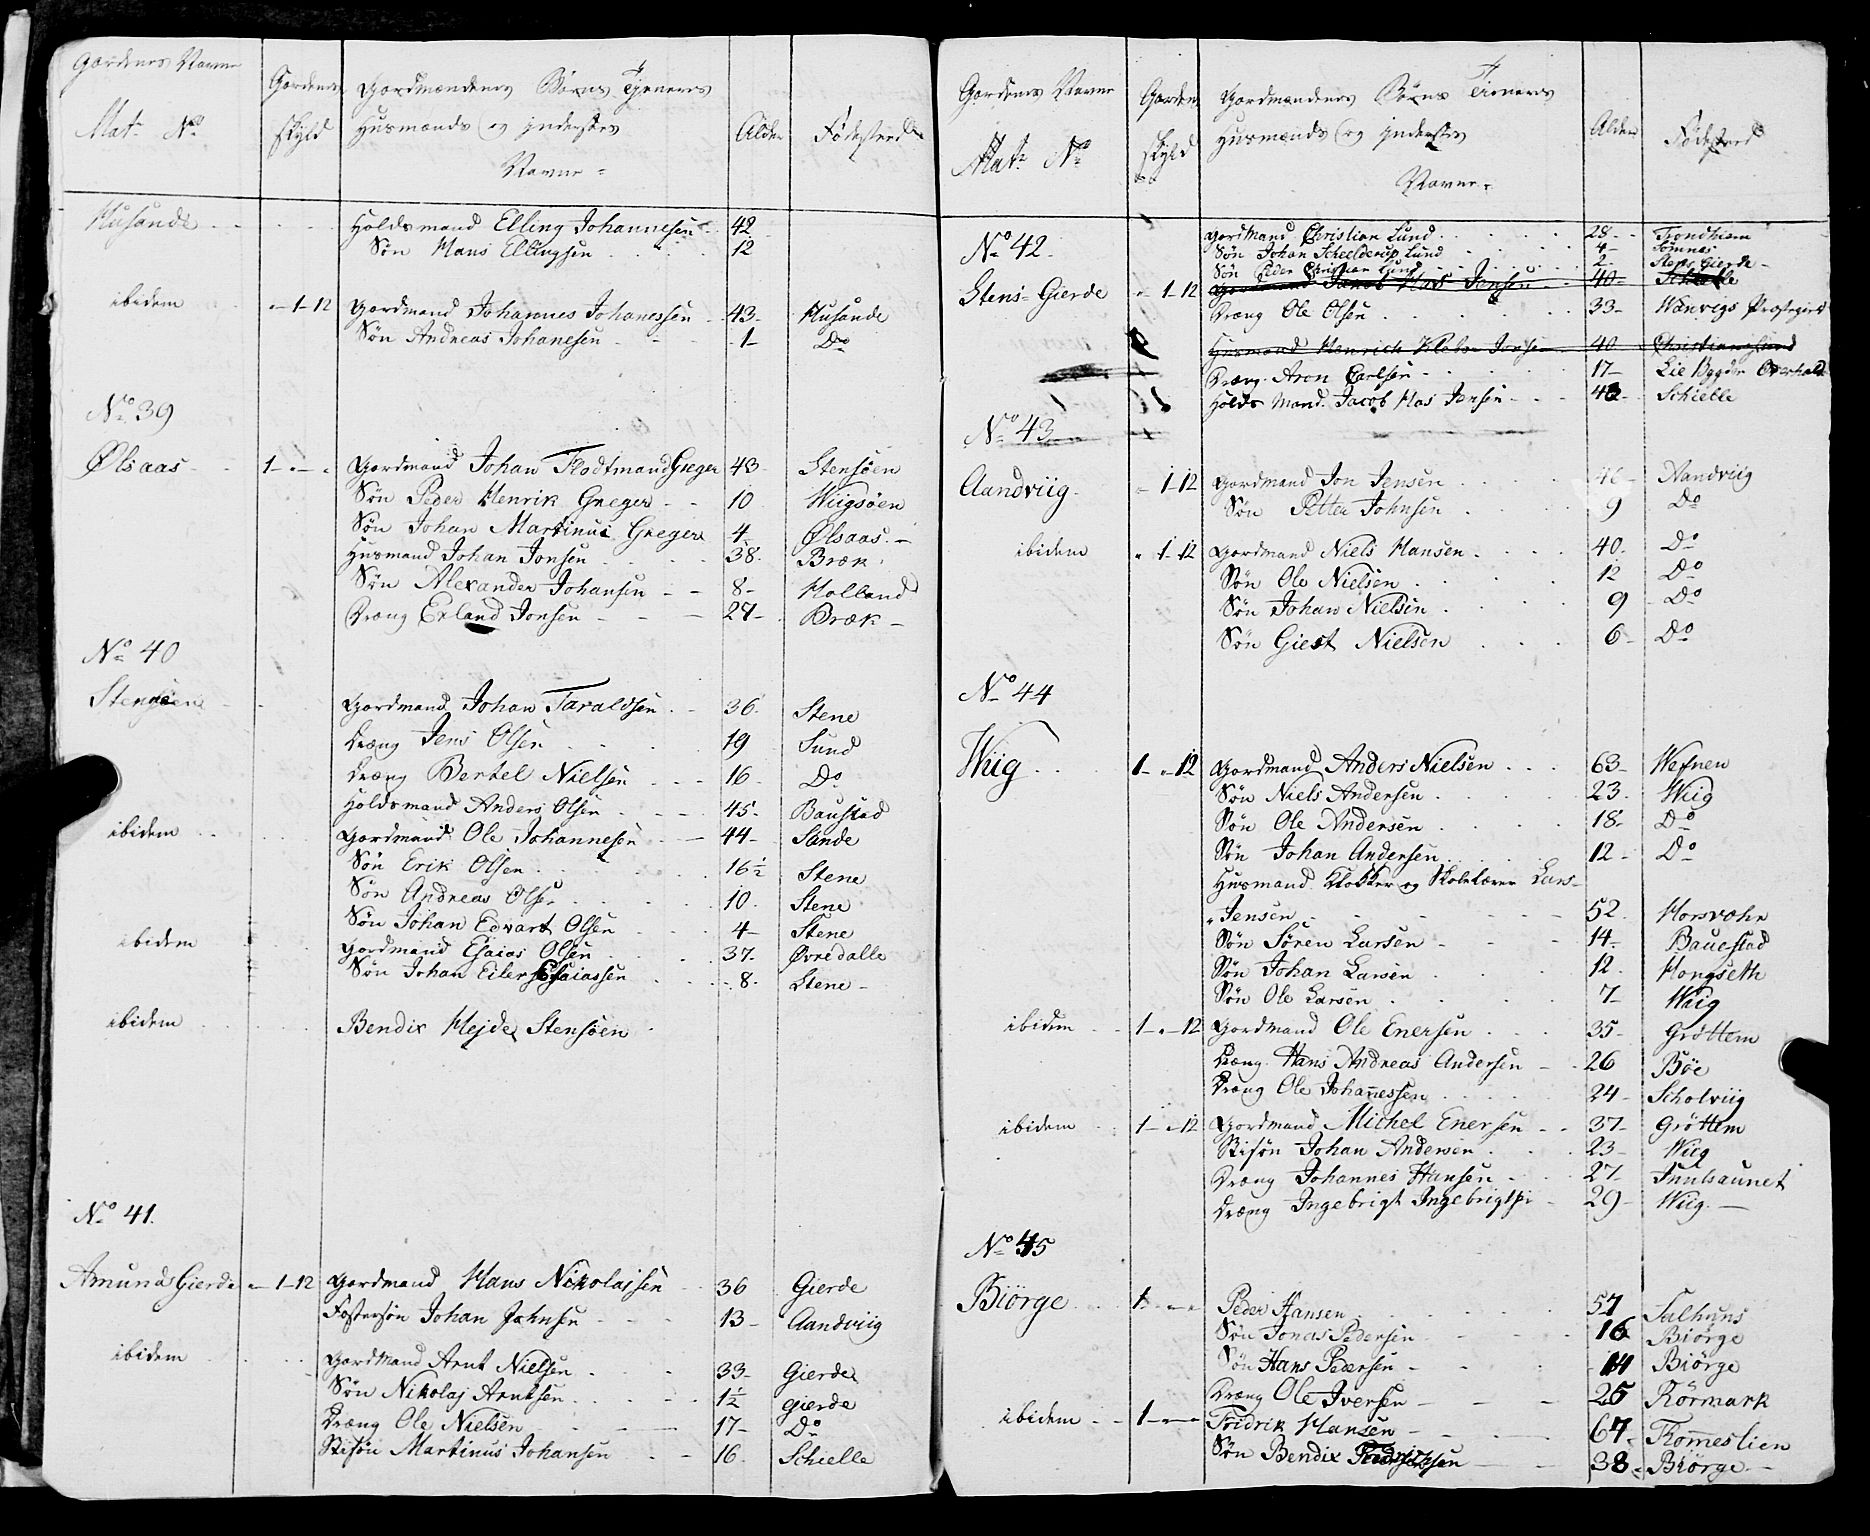 Gaardenes Navne
Mat: No
Gaardens
skyld
Gaardmændenes Børns Tjeneres
Huusmænds og inderstes
Navne
Alder
Fødested
Husande Holdsmand Elling Johannesen 42
Søn Hans Ellingsen 12
ibidem 1-12 Gaardmand Johannes Johanessen 43 Husande
Søn Andreas Johanesen 1 Do
No 39
Ølsaas 1 Gaardmand Johan Flodtmand Greger 43 Stensøen
Søn Peder Henrik Greger 10 Wiigsøen
Søn Johan Martinus Greger 4 Ølsaas
Husmand Johan Jonsen 38 Bræk
Søn Alexander Johansen 8 Holland
Dræng Erland Jonsen 27 Bræk
No 40
Stensøen Gaardmand Johan Taraldsen 36 Stene
Dræng Jens Olsen 19 Sund
Dræng Bertel Nielsen 16 Do
Holdsmand Anders Olsen 45 Baustad
ibidem Gaardmand Ole Johannesen 44 Sande
Søn Erik Olsen 16½ Stene
Søn Andreas Olsen 10 Stene
Søn Johan Edvart Olsen 4 Stene
ibidem Gaardmand Esaias Olsen 37 Øvredalle
Søn Johan Eiler Esaiassen 8 Stene
ibidem Bendix Hejde Stensøen
No 41.
Amunds Gierde 1-12 Gaardmand Hans Nikolajsen 36 Gierde
Fostersøn Johan Johnsen 13 Aandviig
ibidem Gaardmand Arnt Nielsen 33 Gierde
Søn Nikolaj Arntsen 1½ gierde
Dræng Ole Nielsen 17 Do
Stisøn Martinus Johansen 16 Schielle
Gaardenes Navne
Mat: No
Gaardens
skyld
Gaardmændenes Børns Tieneres
Husmænds og inderstes
Navne
Alder
Fødested
No 42. Gaardmand Christian Lund 28 Trondhiem
Søn Johan Scheelderup Lund 4 Sømnæs
Søn Peder Christian Lund 2 Stens Gierde
Stens-Gierde 1-12 Gaardmand Jacob Has Jensen 40 Schielle
Dræng Ole Olsen 33 Wærvigs Prestegield
Husmand Henrich Jensen 40 Christiansund
Dræng Aron Carlsen 17 Lie Bygden Overhald
Holds Mand Jacob Has Jensen 43 Schielle
No 43
Aandviig 1-12 Gaardmand Jon Jensen 46 Aandviig
Søn Petter Johnsen 9 Do
ibidem 1-12 Gaardmand Niels Hansen 40 Do
Søn Ole Nielsen 12 Do
Søn Johan Nielsen 9 Do
Søn Giert Nielsen 6 Do
No 44
Wiig 1-12 Gaardmand Anders Nielsen 63 Wefnen
Søn Niels Andersen 23 Wiig
Søn Ole Andersen 18 Do
Søn Johan Andersen 12 Do
Husmand Klokker og Skolelærer Lars
Jensen 52 Horsvohr
Søn Sören Larsen 14 Bauestad
Søn Johan Larsen 12 Hongseth
Søn Ole Larsen 7 Wiig
ibidem 1-12 Gaardmand Ole Enersen 35 Grøttem
Dræng Hans Andreas Andersen 26 Böe
Dræng Ole Johannessen 24 Scholviig
ibidem 1-12 Gaardmand Michel Enersen 37 Grøttem
Stisøn Johan Andersen 23 Wiig
Dræng Johannes Hansen 27 Snulsaunet
Dræng Ingebrigt Ingebrigtsen 29 Wiig
No 45
Biörge 1 Peder Hansen 57 Salhuus
Søn Jonas Pedersen 16 Biörge
Søn Hans Pedersen 14 Biörge
Dræng Ole Iversen 25 Rörmark
ibidem 1 Fridrik Hansen 67 Rommeslien
Søn Bendix Fredriksen 38 Biörge